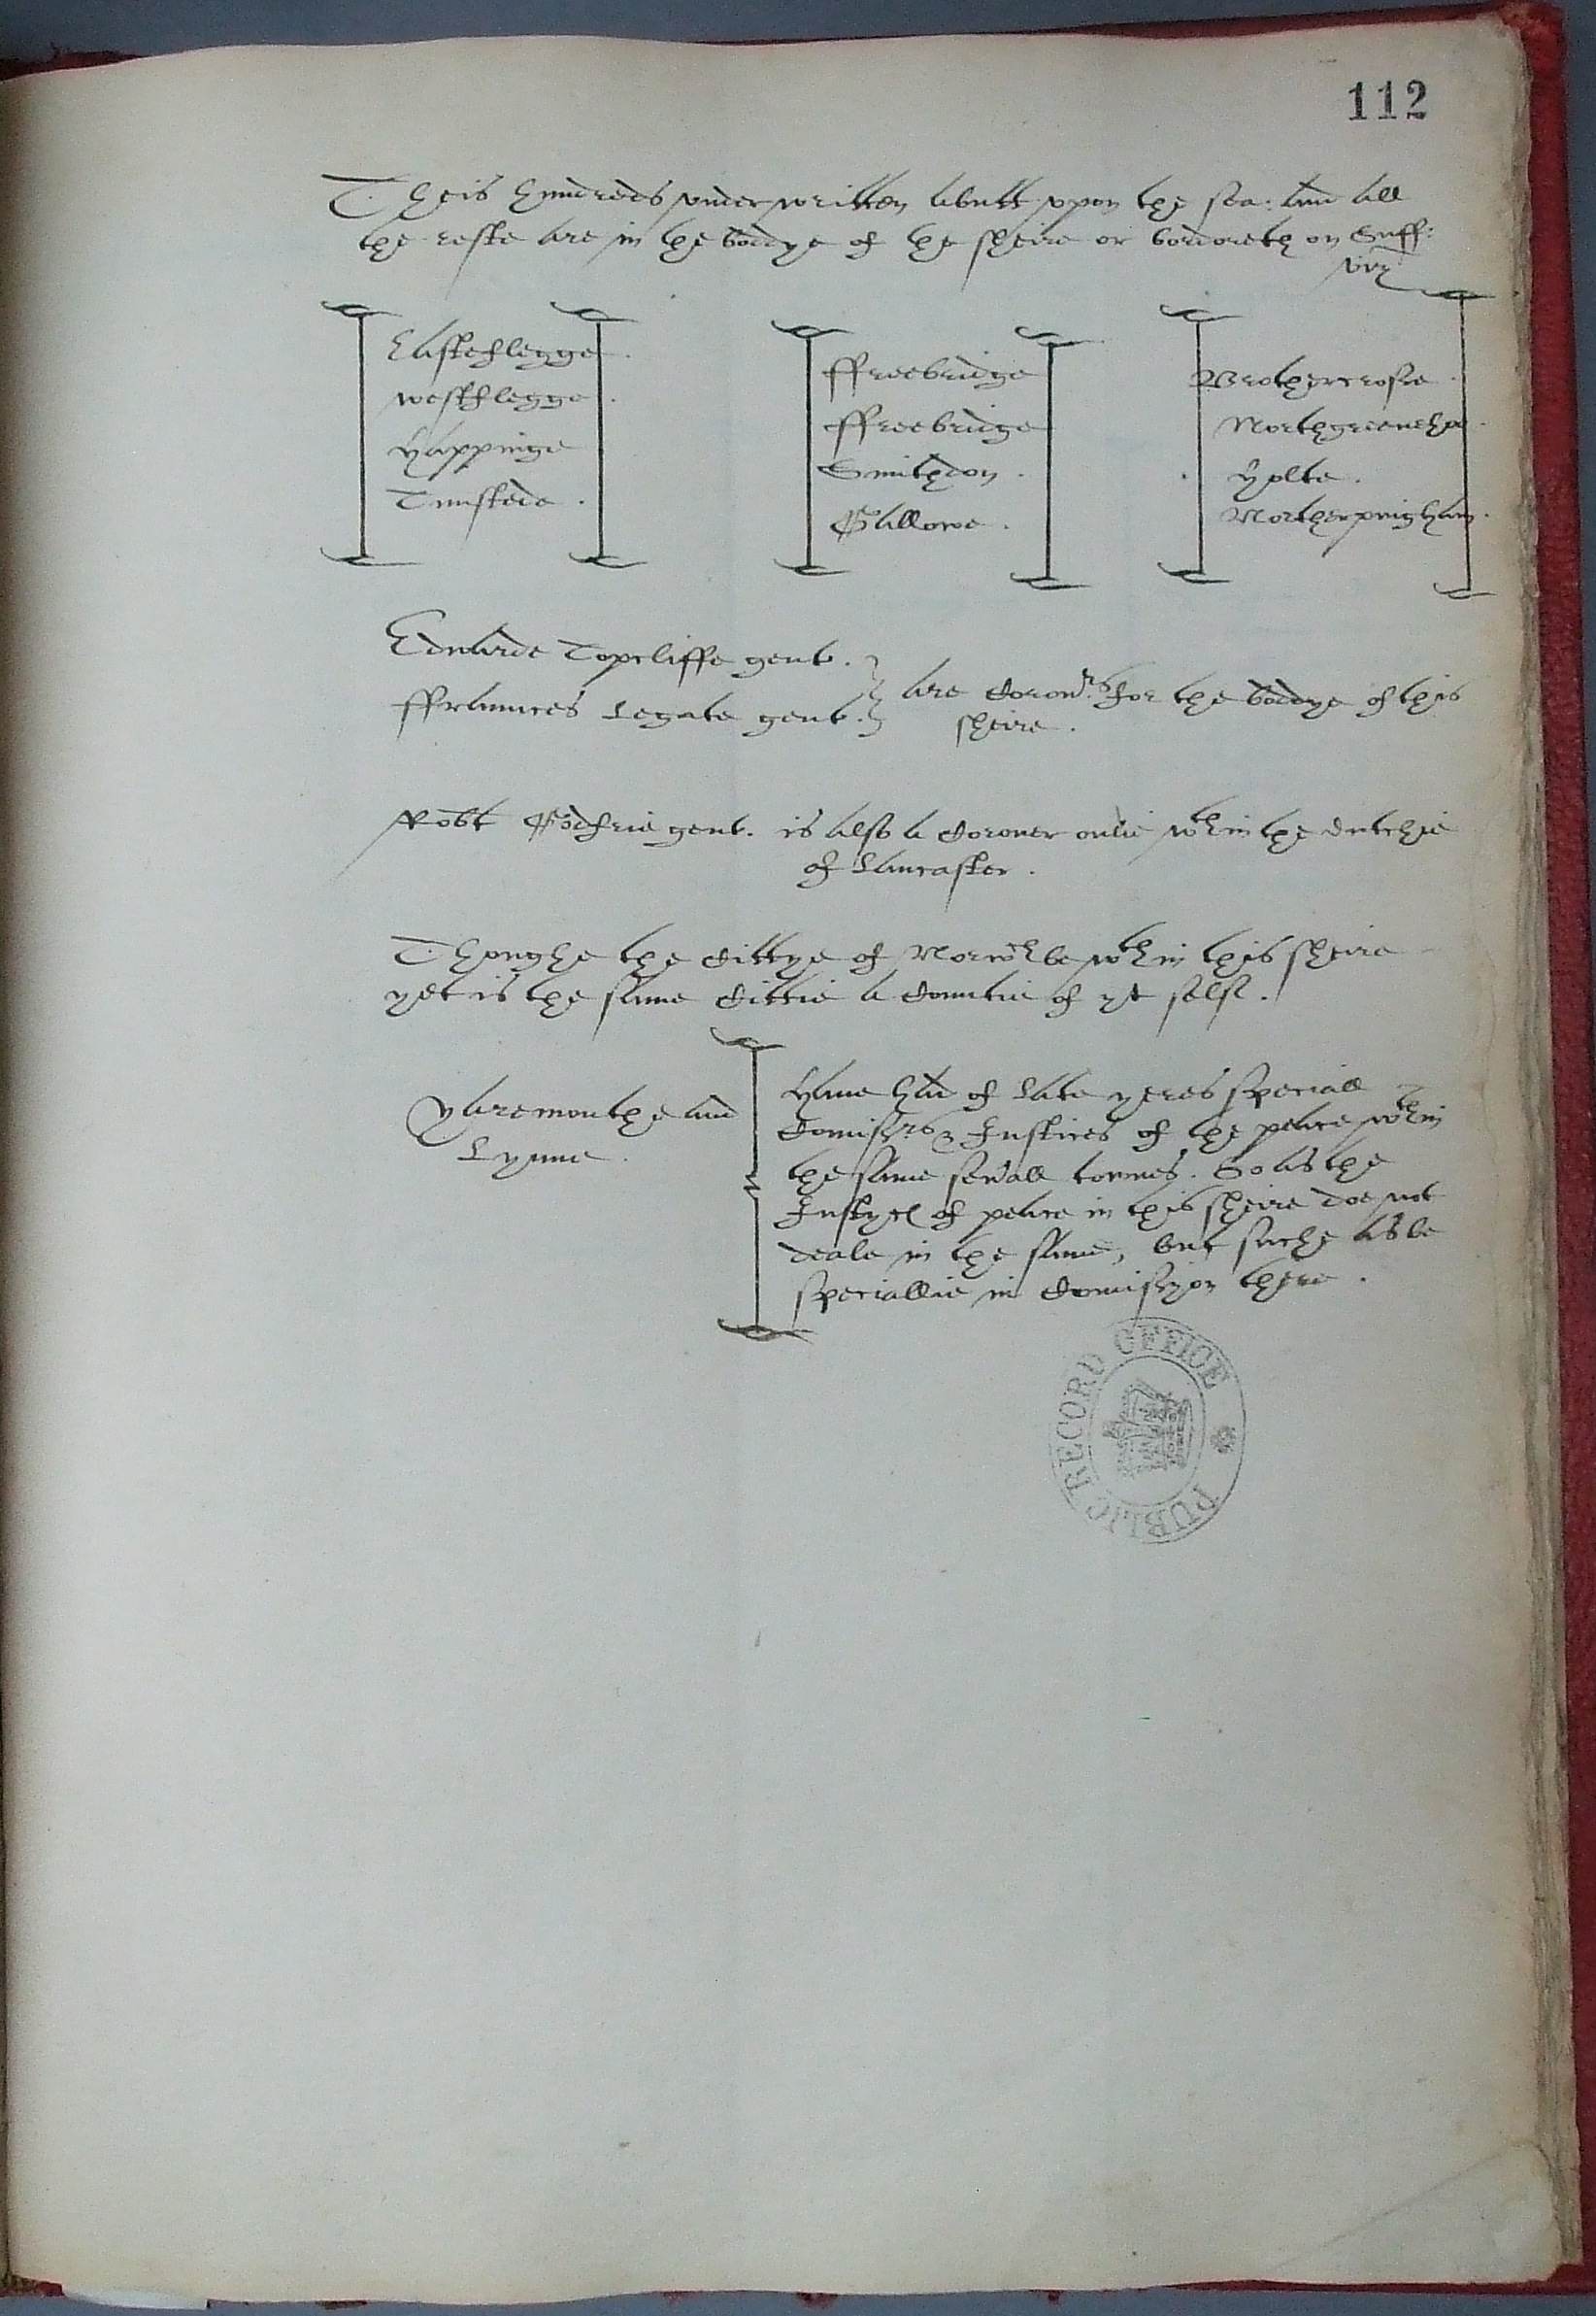 112
Theis hundreds vnderwritten abutt vpon the sea: and all
the reste are in the boddye of the sheire or bordoreth on Suff:
vizt
Easteflegge.
westflegge.
Happinge
Tunstede.
ffreebridge
ffreebridge
Smithdon.
Gallowe.
Brothercrosse.
Northgreenehoe.
Holte.
Northerpingham.
Edwarde Topcliffe gent.
ffraunces Legate gent.
are Coron.rs for the boddye of this
sheire.
Robt Godfrie gent. is also a Coroner onlie wthin the dutchie
of Lancaster.
Thoughe the Cittye of Norwch be wthin this sheire
yet is the same Cittie a Countie of yt selfe.
Yaremouthe and
Lynne.
Haue had of late yeres speciall
Comissrs & Justices of the peace wthin
the same seuall townes. So as the
Justyces of peace in this sheire doe not
deale in the same, but suche as be
speciallie in Comissyon there.
PUBLIC RECORD OFFICE